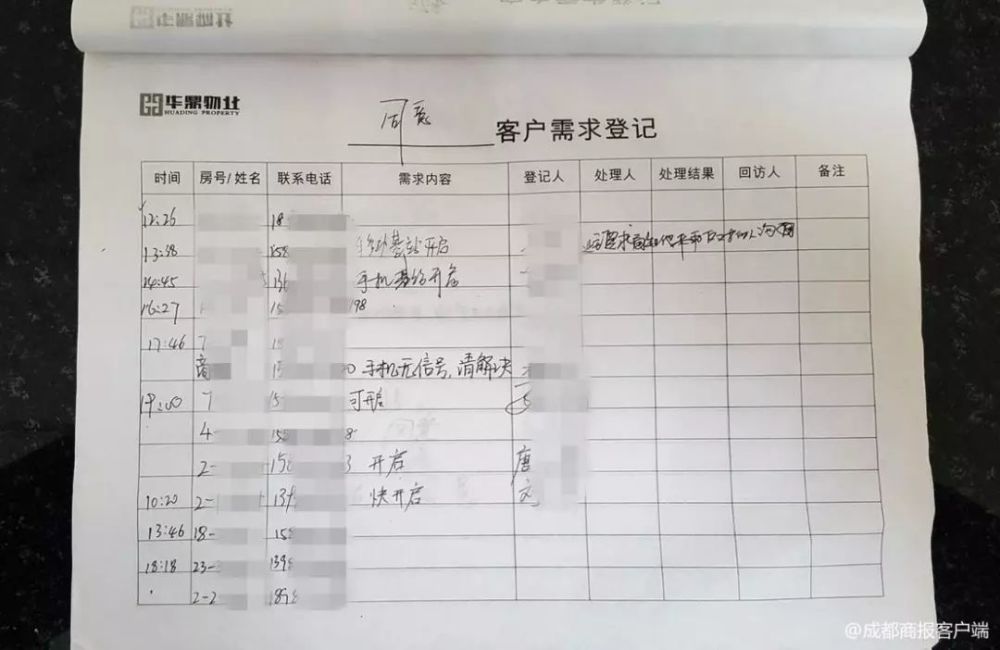 华鼎物业
华鼎物业
HUADING PROPERTY
同意
客户需求登记
时间 房号/姓名 联系电话 需求内容 登记人 处理人 处理结果 回访人 备注
12:26 18
13:38 158 基站开启
14:45 136 手机基站开启
16:27 15 198
17:46 7 18
15 0 手机无信号,请解决
19:00 7 15 可开启
4- 158 8
2- 158 3 开启 唐
10:20 2- 139 快开启 文
13:46 18- 158
18:18 23- 139
2-2 189
@成都商报客户端